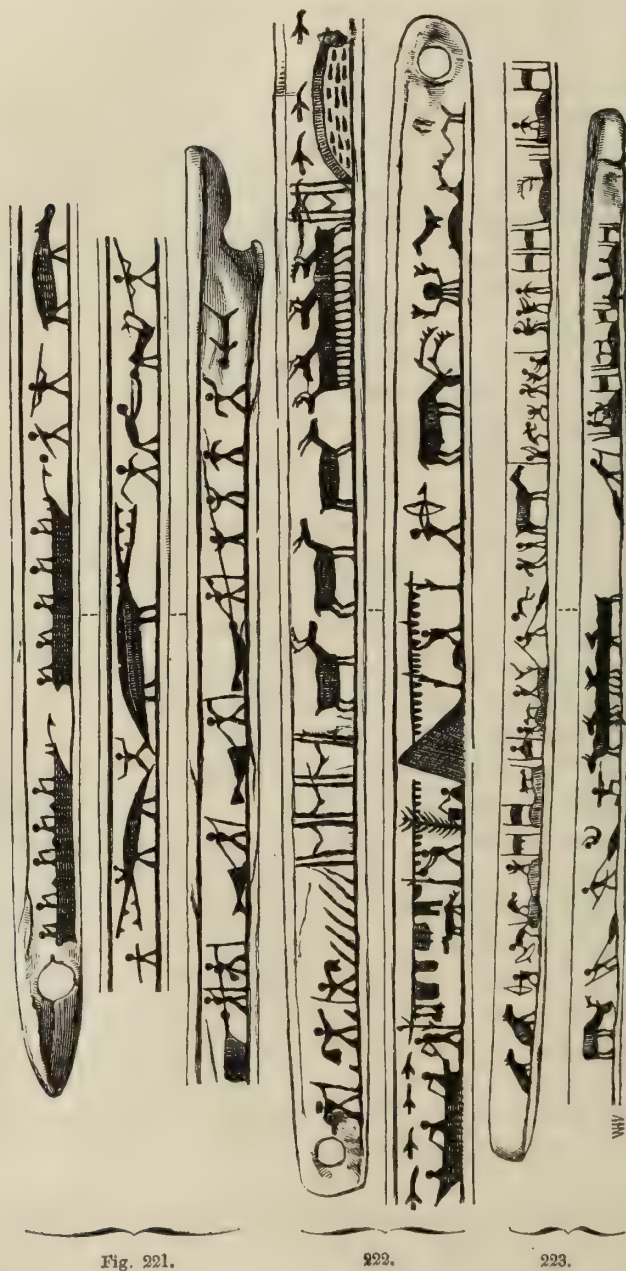 Fig. 221. 222. 223.